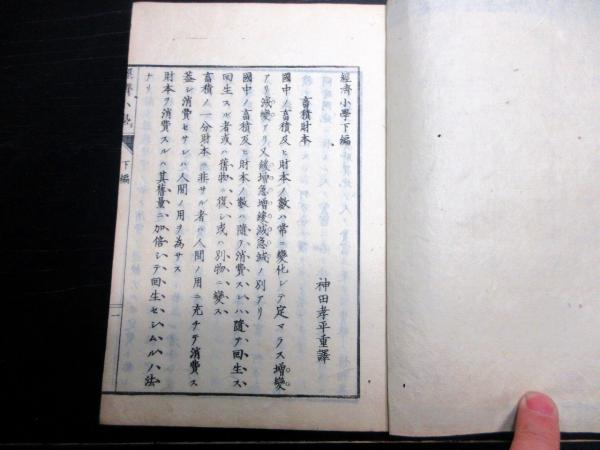 經濟小學下編
神田孝平重譯
畜積財本
國中ノ畜積及ヒ財本ノ數ハ常ニ變化シテ定マラス増變
アリ減變アリ又緩増急増緩減急減ノ別アリ
國中ノ畜積及ヒ財本ノ數ハ隨テ消費スレハ隨テ回生ス
回生スル者或ハ舊物ニ復シ或ハ別物ニ變ス
畜積ノ一分財本ニ非サル者ハ人間ノ用ニ充テヽ消費ス
蓋シ消費セサレハ人間ノ用ヲ為サス
財本ヲ消費スルハ其舊量ニ加倍シテ回生セシムルノ法
ナリ
經濟小學
下編
一